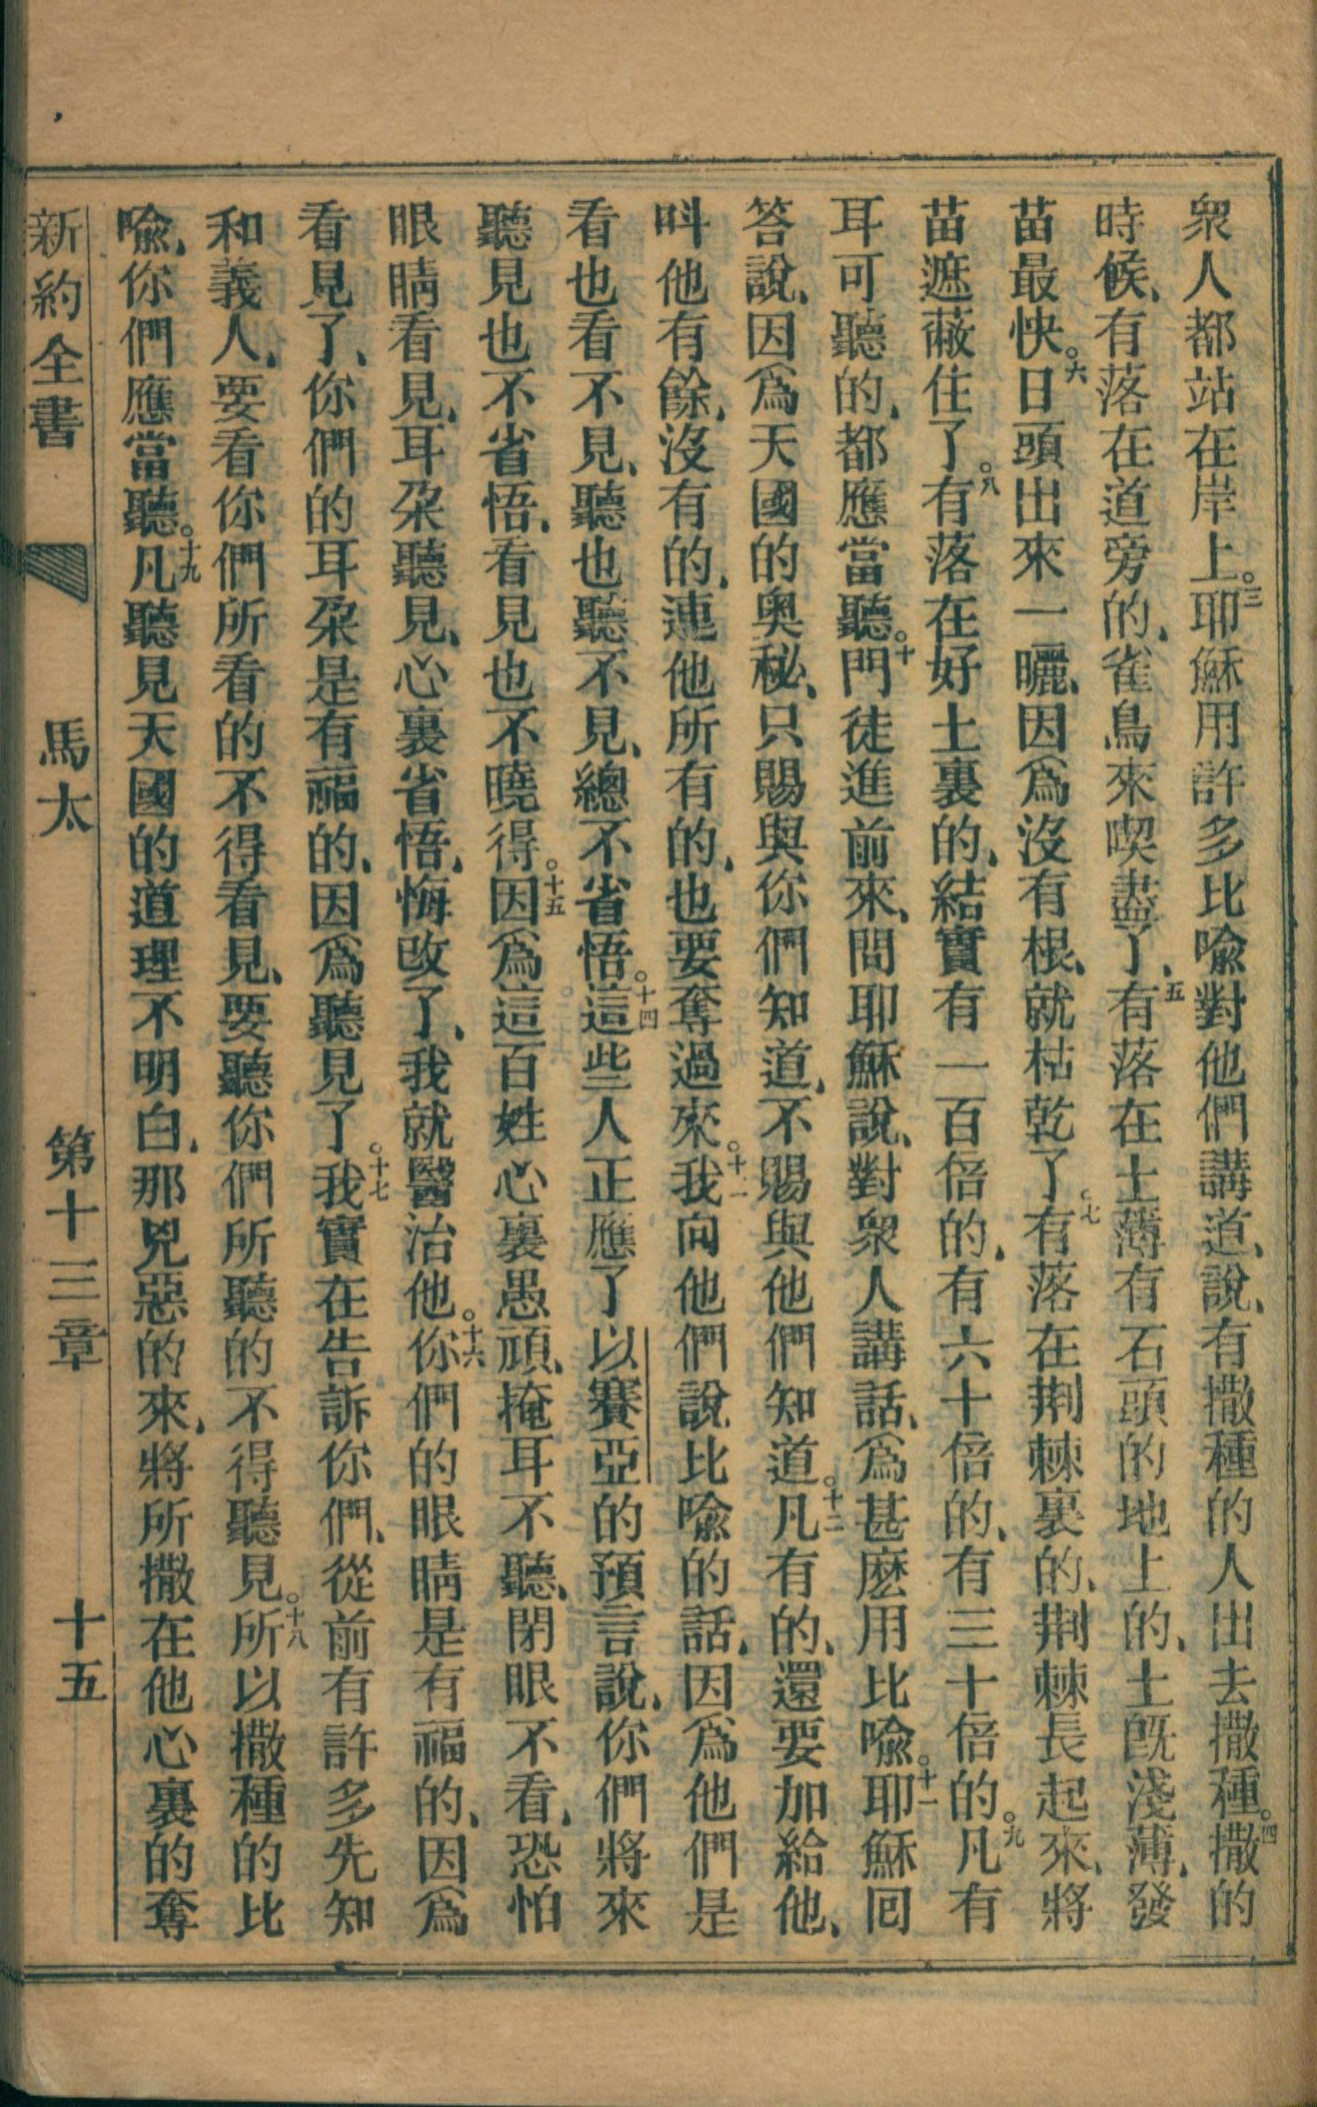 衆人都站在岸上。三耶穌用許多比喩對他們講道、說、有撒種的人出去撒種。四撒的
時候、有落在道旁的、雀鳥來喫盡了、五有落在土薄有石頭的地上的、土旣淺薄、發
苗最快。六日頭出來一曬、因爲沒有根、就枯乾了。七有落在荆棘裏的、荆棘長起來、將
苗遮蔽住了。八有落在好土裏的、結實有一百倍的、有六十倍的、有三十倍的。九凡有
耳可聽的、都應當聽。十門徒進前來、問耶穌說、對衆人講話、爲甚麽用比喩。十一耶穌回
答說、因爲天國的奥秘、只賜與你們知道、不賜與他們知道。十二凡有的、還要加給他、
呌他有餘、沒有的、連他所有的、也要奪過來。十三我向他們說比喩的話、因爲他們是
看也看不見、聽也聽不見、總不省悟。十四這些人正應了以賽亞的預言說、你們將來
聽見也不省悟、看見也不曉得。十五因爲這百姓心裏愚頑、掩耳不聽、閉眼不看、恐怕
眼睛看見、耳朶聽見、心裏省悟、悔改了、我就醫治他。十六你們的眼睛是有福的、因爲
看見了、你們的耳朶是有福的、因爲聽見了。十七我實在告訴你們、從前有許多先知
和義人、要看你們所看的不得看見、要聽你們所聽的不得聽見。十八所以撒種的比
喩、你們應當聽。十九凡聽見天國的道理不明白、那兇惡的來、將所撒在他心裏的奪
新約全書 馬太 第十三章 十五